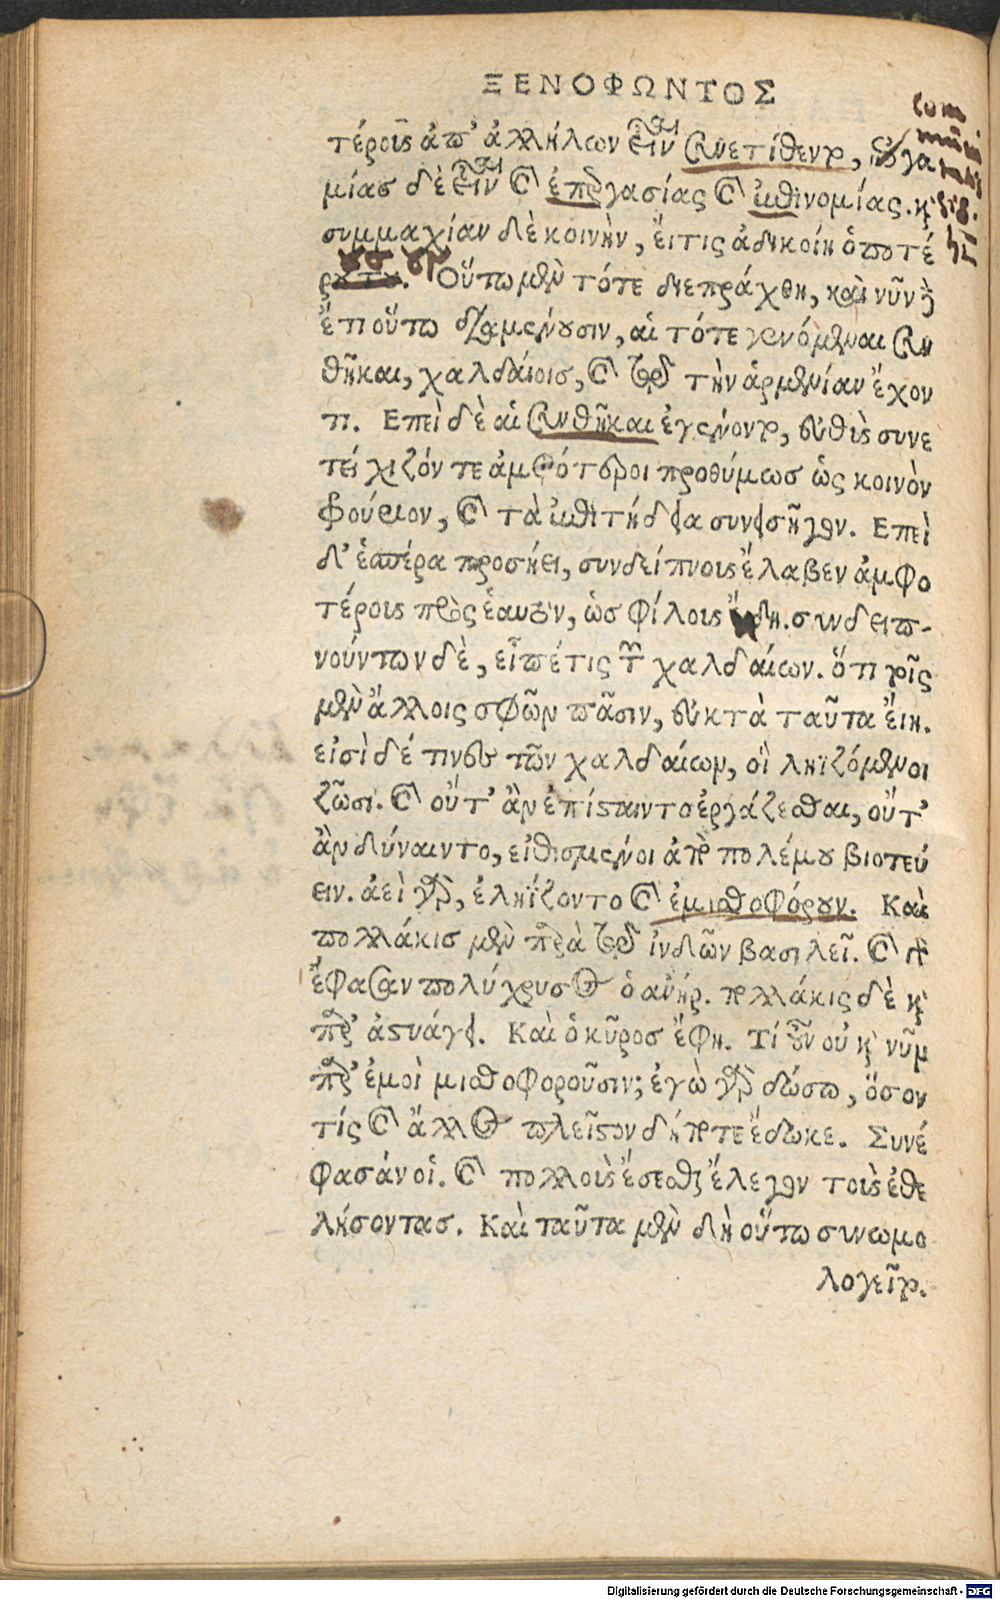 ΞΕΝΟΦΩΝΤΟΣ
τέροις ἀπ' ἀλλήλων εἶναι συνετίθεντο, ἐπιγα
μίας δὲ εἶναι καὶ ἐπεργασίας καὶ ἐπινομίας. καὶ
συμμαχίαν δὲ κοινὴν, εἴ τις ἀδικοίη ὁποτέ
ρ Οὕτω μὲν τότε διεπράχθη, καὶ νῦν δὲ
ἔτι οὕτω διαμένουσιν, αἱ τότε γενόμεναι συν
θῆκαι, χαλδαίοις, καὶ τῷ τὴν ἀρμενίαν ἔχον
τι. Επεὶ δὲ αἱ συνθῆκαι ἐγένοντο, εὐθὺς συνε
τείχιζόν τε ἀμφότεροι προθύμως ὡς κοινὸν
φρούριον, καὶ τὰ ἐπιτήδεια συνεισῆγον. Επεὶ
δ' ἑσπέρα προσῄει, συνδείπνους ἔλαβεν ἀμφο
τέρους πρὸς ἑαυτὸν, ὡς φίλους ἤδη. συνδειπ-
νούντων δὲ, εἶπέ τις τῶν χαλδαίων. ὅτι τοῖς
μὲν ἄλλοις σφῶν πᾶσιν, εὐκτὰ ταῦτα εἴη.
εἰσὶ δέ τινες τῶν χαλδαίων, οἳ ληϊζόμενοι
ζῶσι. καὶ οὔτ' ἂν ἐπίσταιντο ἐργάζεσθαι, οὔτ'
ἂν δύναιντο, εἰθισμένοι ἀπὸ πολέμου βιοτεύ
ειν. ἀεὶ γὰρ, ἐληΐζοντο καὶ ἐμισθοφόρουν. Καὶ
πολλάκις μὲν παρὰ τῷ ἰνδῶν βασιλεῖ. καὶ γὰρ
ἔφασαν πολύχρυσος ὁ ἀνήρ. πολλάκις δὲ καὶ
παρ' ἀστυάγει. Καὶ ὁ κῦρος ἔφη. Τί οὖν οὐ καὶ νῦν
παρ' ἐμοὶ μισθοφοροῦσιν; ἐγὼ γὰρ δώσω, ὅσον
τίς καὶ ἄλλος πλεῖστον δήποτε ἔδωκε. Συνέ
φασάν οἱ. καὶ πολλοὺς ἔσεσθαι ἔλεγον τοὺς ἐθε
λήσοντας. Καὶ ταῦτα μὲν δὴ οὕτω συνωμο
λογεῖτο.
Digitalisierung gefördert durch die Deutsche Forschungsgemeinschaft - DFG